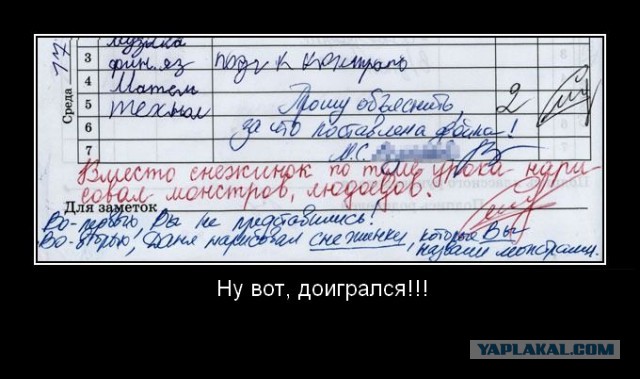 музыка
17
3 фин. яз подг к контроль
4 Матем
Среда
5 технол Прошу объяснить, 2
6 за что поставлена двойка!
7 М.С.
Вместо снежинок по теме урока нари
совал монстров, людоедов.
Для заметок
Во-первых, Вы не представились!
Во-вторых, Даня нарисовал снежинки, которые Вы
назвали монстрами.
Ну вот, доигрался!!!
YAPLAKAL.COM